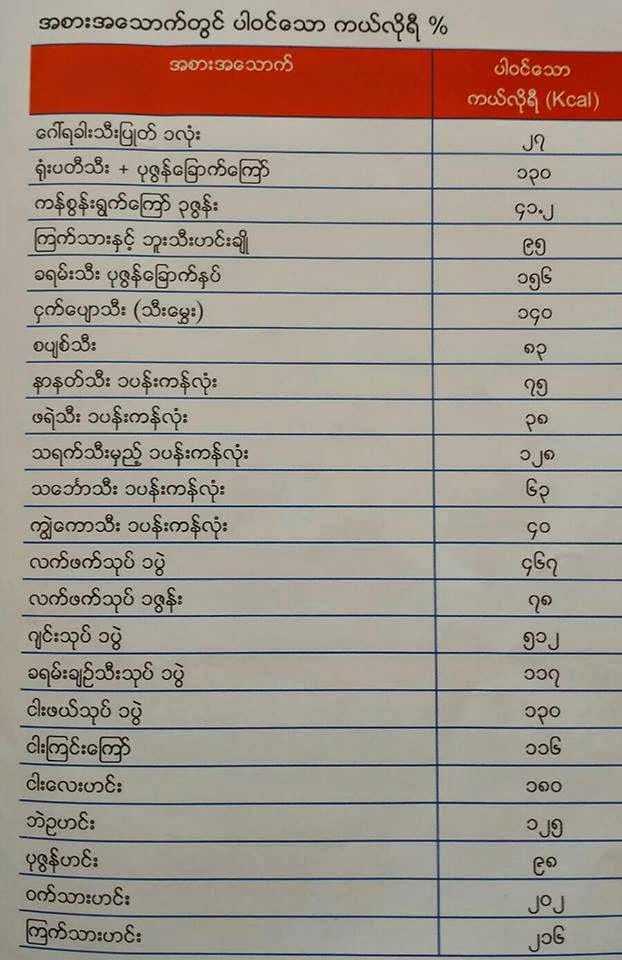 အစားအသောက်တွင် ပါဝင်သော ကယ်လိုရီ %
အစားအသောက် ပါဝင်သော
ကယ်လိုရီ (Kcal)
ဂေါ်ရခါးသီးပြုတ် ၁လုံး ၂၇
ရုံးပတီသီး + ပုဇွန်ခြောက်ကြော် ၁၃၀
ကန်စွန်းရွက်ကြော် ၃ဇွန်း ၄၁.၂
ကြက်သားနှင့် ဘူးသီးဟင်းချို ၉၅
ခရမ်းသီး ပုဇွန်ခြောက်နှပ် ၁၅၆
ငှက်ပျောသီး (သီးမွှေး) ၁၄၀
စပျစ်သီး ၈၃
နာနတ်သီး ၁ပန်းကန်လုံး ၇၅
ဖရဲသီး ၁ပန်းကန်လုံး ၃၈
သရက်သီးမှည့် ၁ပန်းကန်လုံး ၁၂၈
သင်္ဘောသီး ၁ပန်းကန်လုံး ၆၃
ကျွဲကောသီး ၁ပန်းကန်လုံး ၄၀
လက်ဖက်သုပ် ၁ပွဲ ၄၆၇
လက်ဖက်သုပ် ၁ဇွန်း ၇၈
ဂျင်းသုပ် ၁ပွဲ ၅၁၂
ခရမ်းချဉ်သီးသုပ် ၁ပွဲ ၁၁၇
ငါးဖယ်သုပ် ၁ပွဲ ၁၃၀
ငါးကြင်းကြော် ၁၁၆
ငါးလေးဟင်း ၁၈၀
ဘဲဥဟင်း ၁၂၅
ပုဇွန်ဟင်း ၉၈
ဝက်သားဟင်း ၂၀၂
ကြက်သားဟင်း ၂၁၆